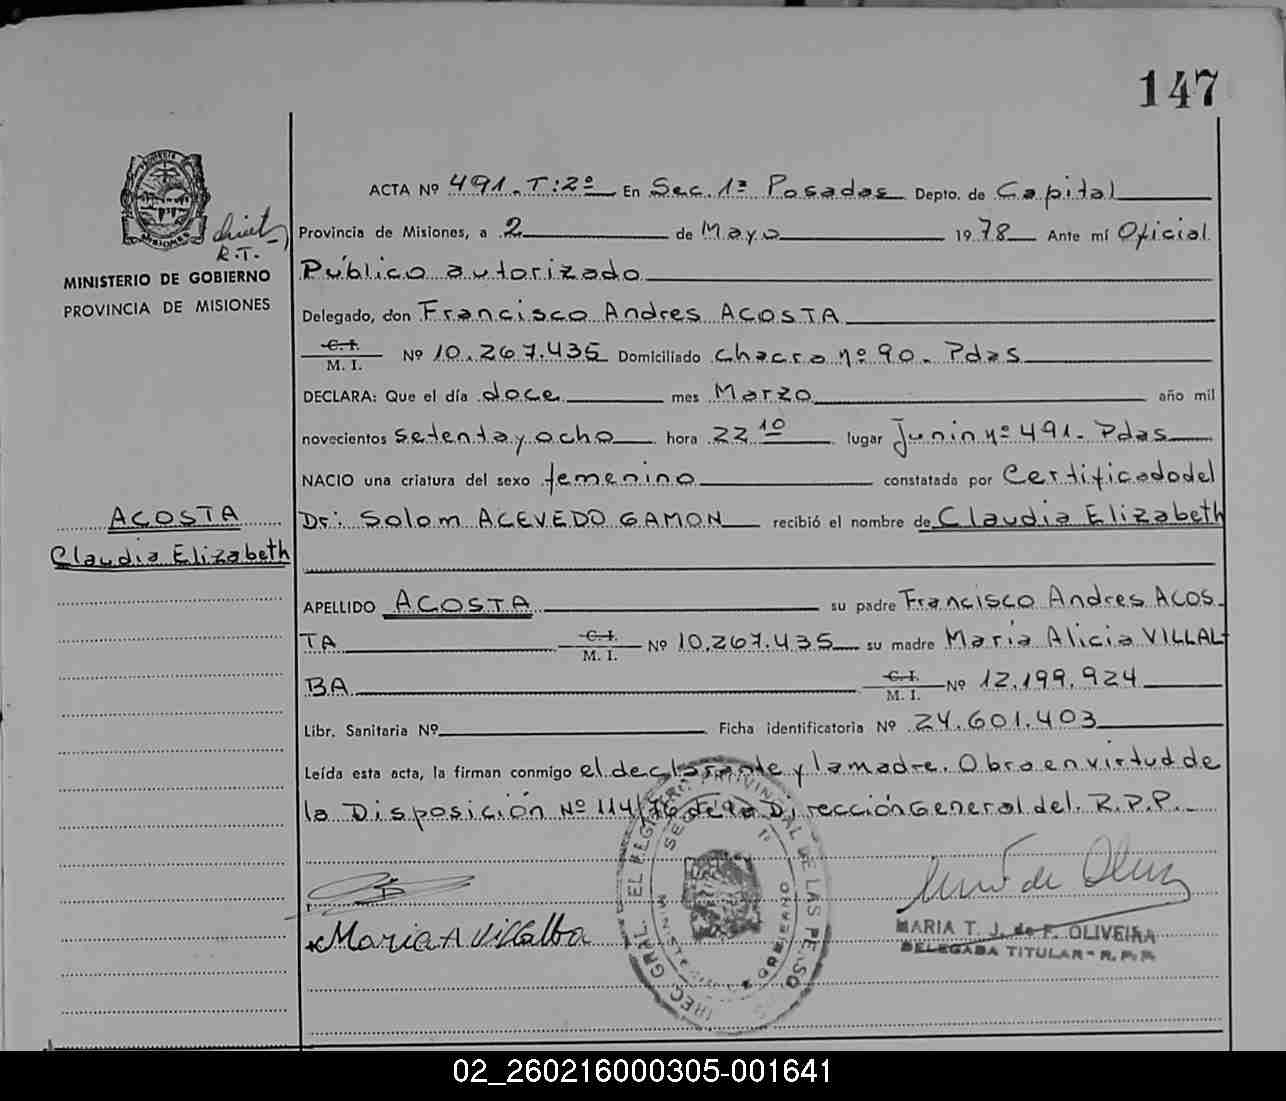 147
ACTA Nº 491. T:2º En Sec. 1ª Posadas Depto. de Capital
Provincia de Misiones, a 2 de Mayo 1978 Ante mí Oficial
R.T.
Público autorizado
MINISTERIO DE GOBIERNO
PROVINCIA DE MISIONES
Delegado, don Francisco Andres ACOSTA
C.I.
M. I. Nº 10.267.435 Domiciliado chacra nº 90. Pdas
DECLARA: Que el día doce mes Marzo año mil
novecientos setenta y ocho hora 22 10 lugar Junin nº 491. Pdas
NACIO una criatura del sexo femenino constatada por Certificado del
ACOSTA
Dr: Solom ACEVEDO GAMON recibió el nombre de Claudia Elizabeth
Claudia Elizabeth
APELLIDO ACOSTA su padre Francisco Andres ACOS-
TA C.I. M. I. Nº 10.267.435 su madre Maria Alicia VILLAL-
BA C.I. M. I. Nº 12.199.924
Libr. Sanitaria Nº Ficha identificatoria Nº 24.601.403
Leída esta acta, la firman conmigo el declarante y la madre. Obra en virtud de
la Disposición Nº 114/76 de la Dirección General del R.P.P.
Maria A Villalba
MARIA T. J. de F. OLIVEIRA
DELEGADA TITULAR - R. P. P.
02_260216000305-001641